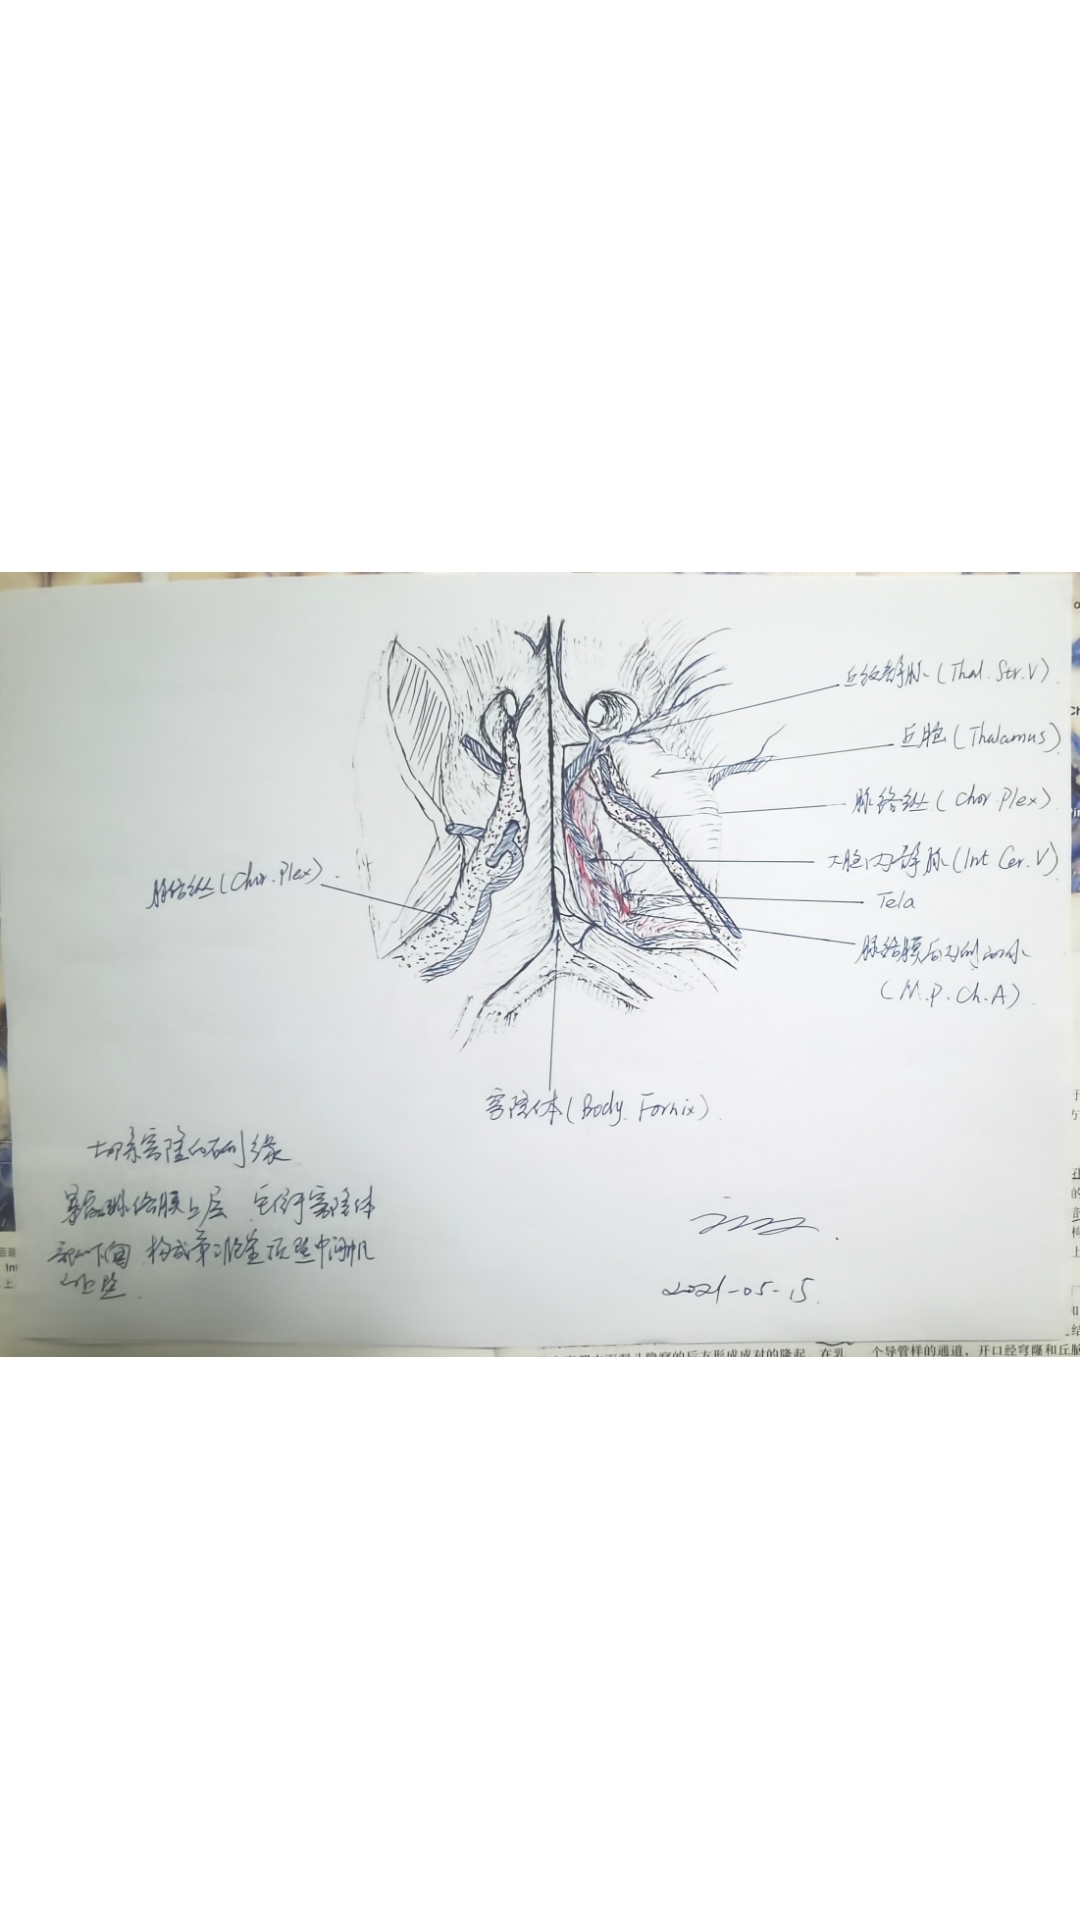 丘纹静脉(Thal. Str. V)
丘脑(Thalamus)
脉络丛(Chor. Plex)
大脑内静脉(Int Cer. V)
Tela
脉络膜后内侧动脉
(M.P.Ch.A)
脉络丛(Chor. Plex)
穹隆体(Body. Fornix)
切除穹隆的右侧缘
暴露脉络膜上层 它位于穹隆体
部的下面 构成第三脑室顶壁中间帆
的上壁
2021-05-15
的后方形成成对的隆起。在乳
个导管样的通道，开口经穹隆和丘脑